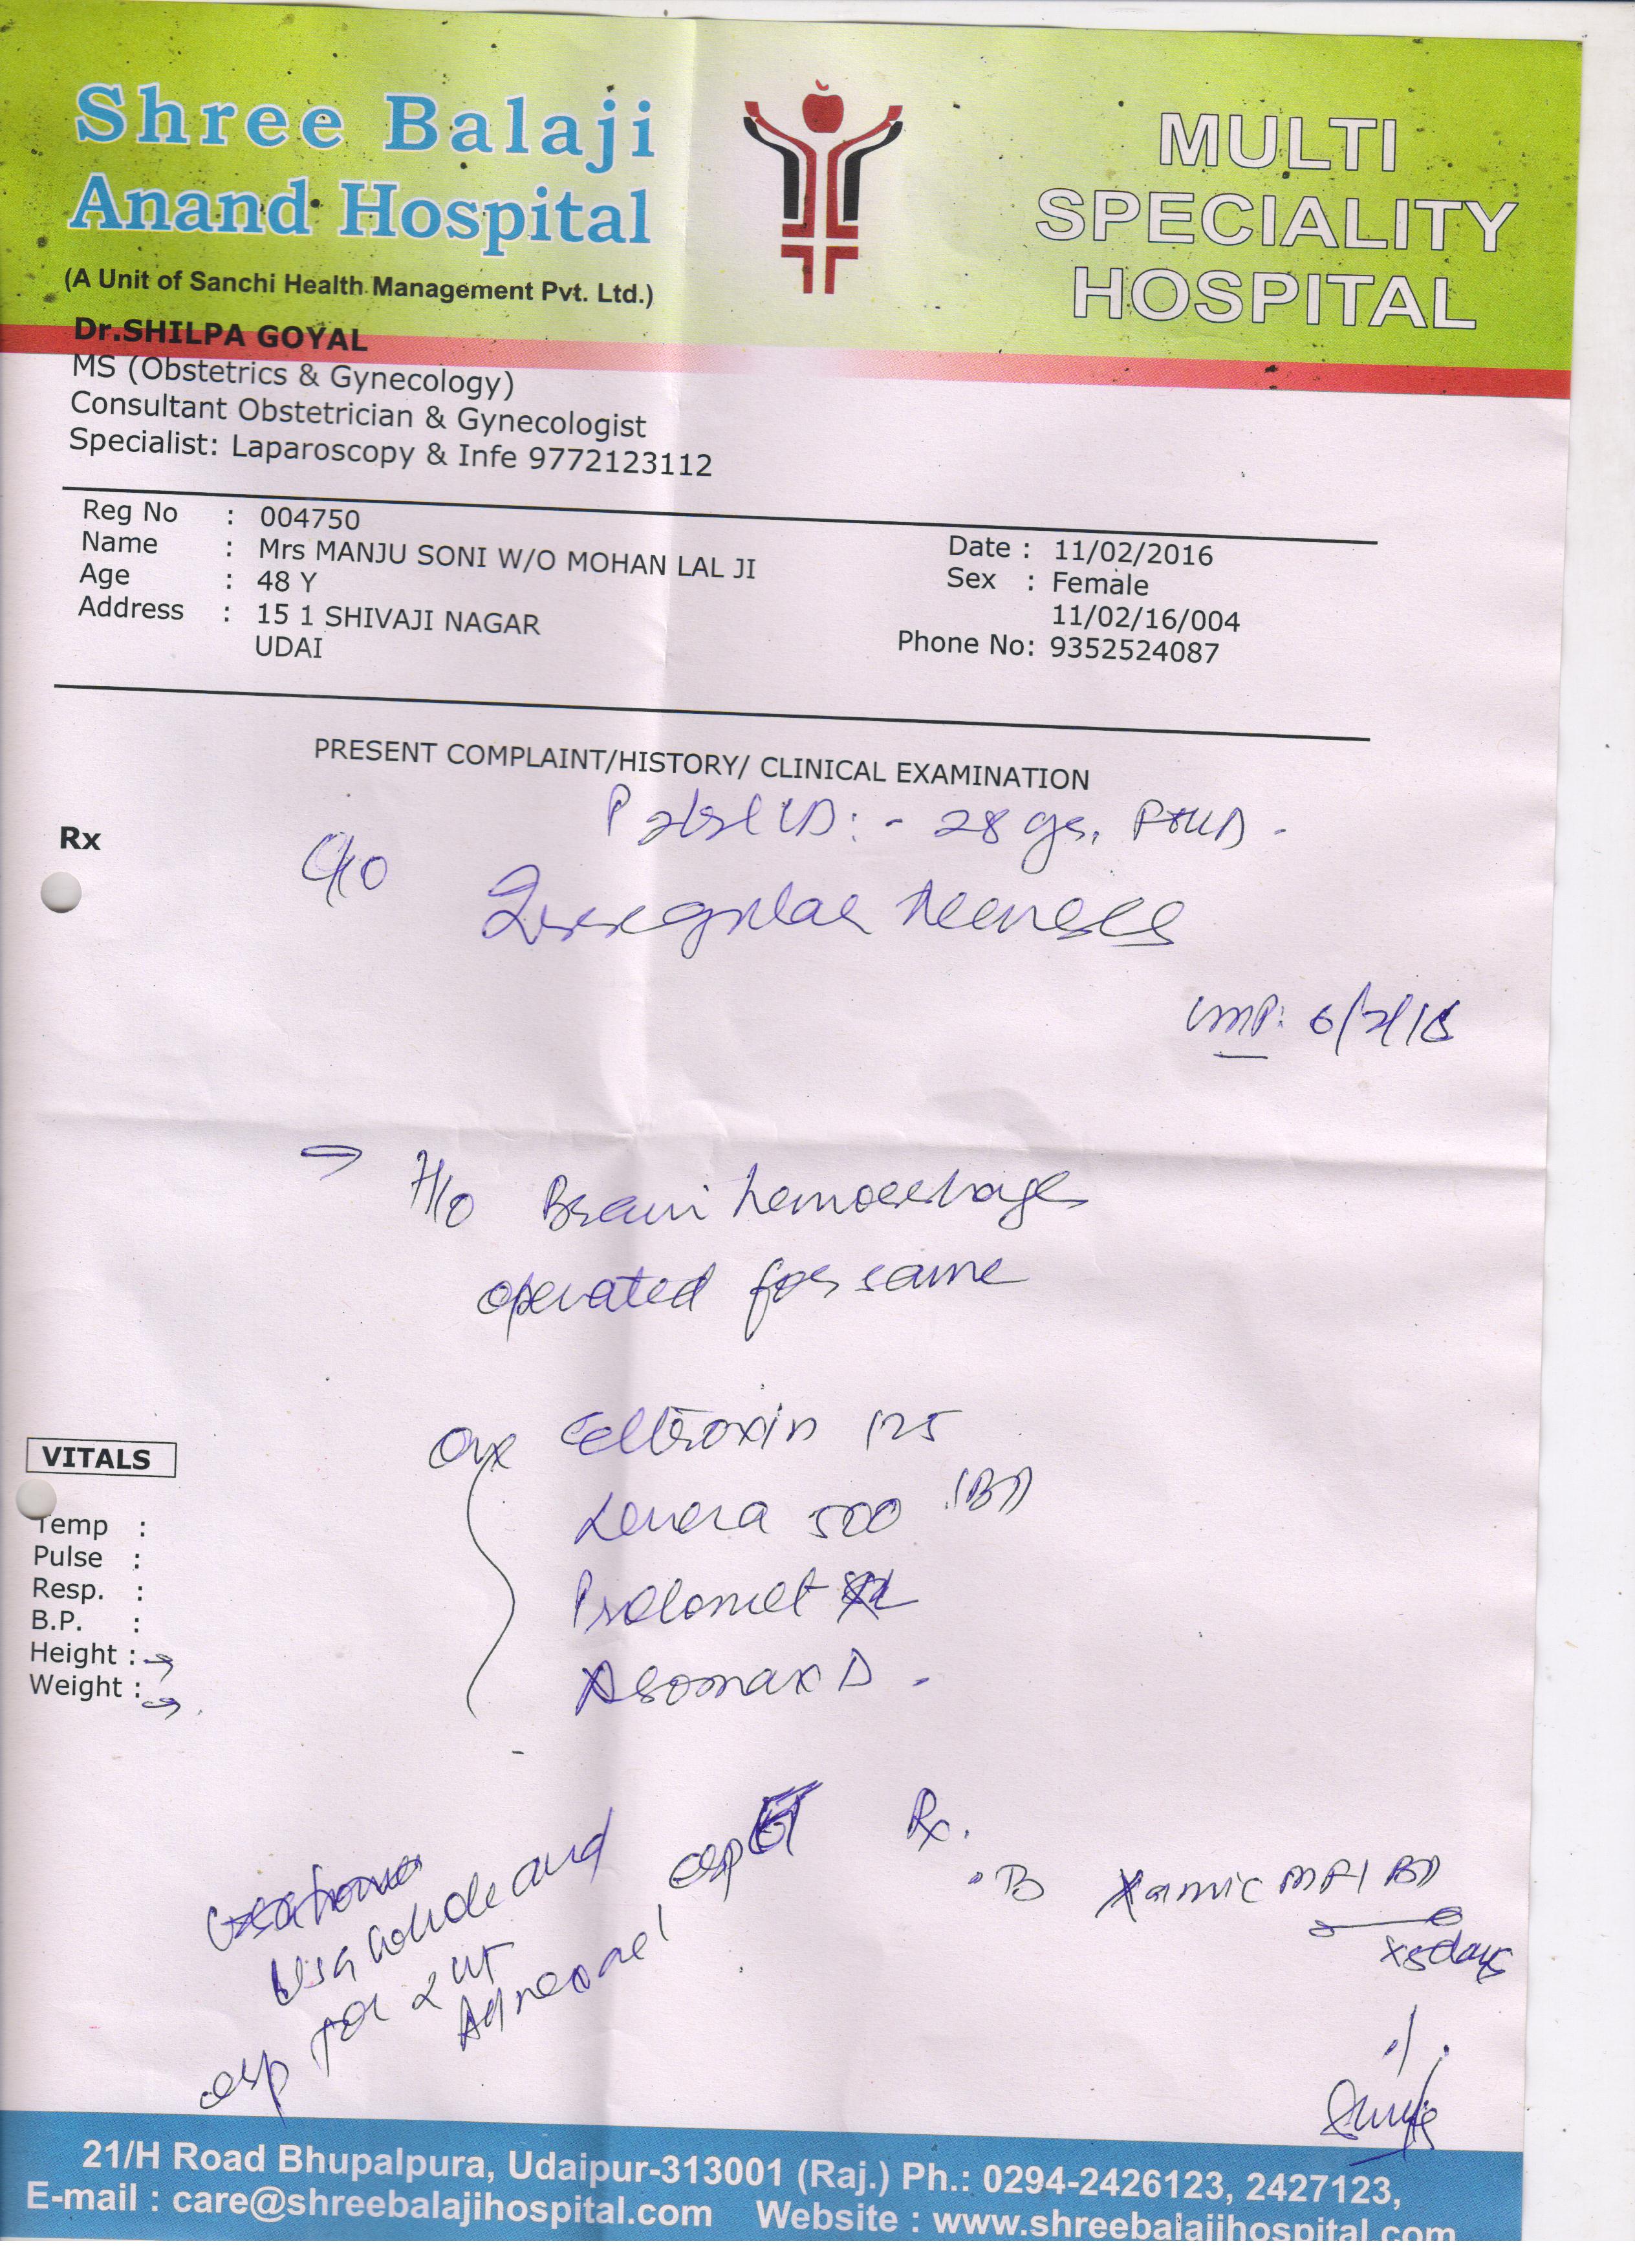 Shree Balaji
Anand Hospital
(A Unit of Sanchi Health Management Pvt. Ltd.)
MULTI
SPECIALITY
HOSPITAL
Dr.SHILPA GOYAL
MS (Obstetrics & Gynecology)
Consultant Obstetrician & Gynecologist
Specialist: Laparoscopy & Infe 9772123112
Reg No : 004750
Name : Mrs MANJU SONI W/O MOHAN LAL JI
Age : 48 Y
Address : 15 1 SHIVAJI NAGAR
UDAI
Date : 11/02/2016
Sex : Female
11/02/16/004
Phone No: 9352524087
PRESENT COMPLAINT/HISTORY/ CLINICAL EXAMINATION
28 ys.
Rx
C/o Irregular menses
LMP: 6/2/16
H/o Brain hemorrhage
operated for same
Eltroxin 125
Levera 500 (BD)
Prolomet XL
Asomax D
VITALS
Temp :
Pulse :
Resp. :
B.P. :
Height :
Weight :
Rx.
Xamic MF 1 BD
x 5 days
USG whole and
for & UT
Adnexae
21/H Road Bhupalpura, Udaipur-313001 (Raj.) Ph.: 0294-2426123, 2427123,
E-mail : care@shreebalajihospital.com Website : www.shreebalajihospital.com